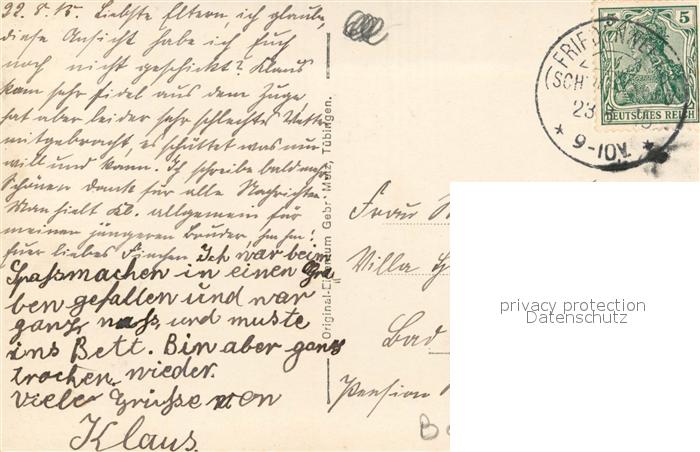 22.8.15. Liebste Eltern, ich glaube,
diese Ansicht habe ich Euch
noch nicht geschickt? Klaus
kam sehr fidel aus dem Zuge
hat aber leider sehr schlechtes Wetter
mitgebracht es schüttet was nur
will und kann. Ich schreibe bald mehr
Schönen Dank für alle Nachrichten.
Man hielt Kl. allgemein für
meinen jüngeren Bruder hm hm!
Euer liebes Finchen Ich war beim
Spassmachen in einen Gra
ben gefallen und war
ganz nass und muste
ins Bett. Bin aber ganz
trochen wieder.
Viele Grüsse von
Klaus.
Original-Eigentum Gebr. Metz, Tübingen.
5 5
DEUTSCHES REICH
23
* 9-10V. *
Frau
Villa
Bad
Pension
privacy protection
Datenschutz